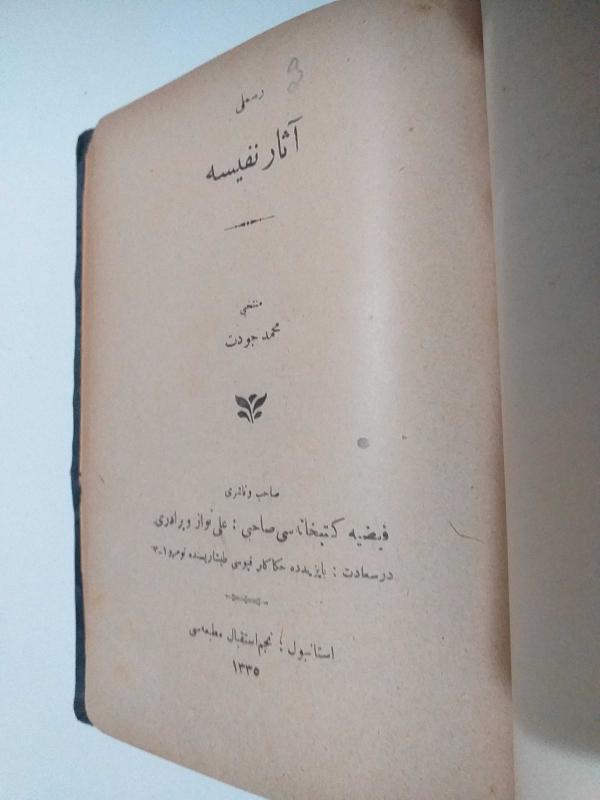 3
رسملی
آثار نفیسه
منتخبی
محمد جودت
صاحب و ناشری
فیضیه کتبخانه‌سی صاحبی : علی نواز و برادری
درسعادت : بایزیدده حکاکلر قپوسی طیشاریسنده نومرو ۱-۳
استانبول : نجم استقبال مطبعه‌سی
۱۳۳۵